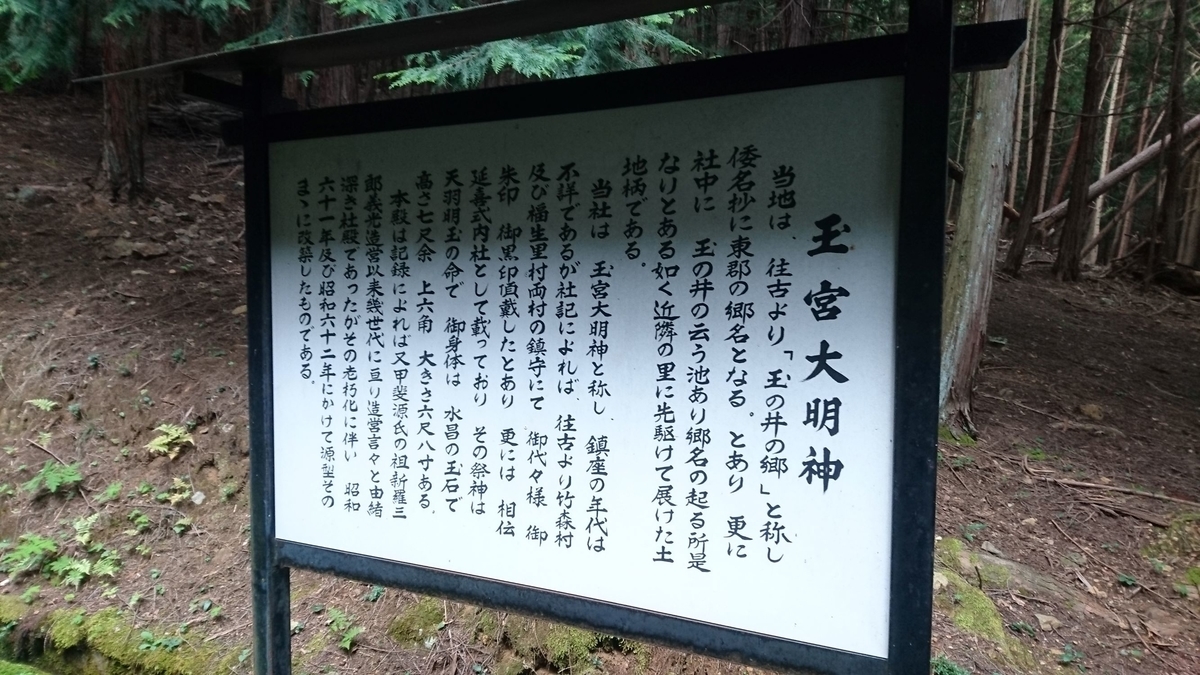 玉宮大明神
当地は、往古より「玉の井の郷」と称し
倭名抄に東郡の郷名となる。とあり 更に
社中に 玉の井の云う池あり郷名の起る所是
なりとある如く近隣の里に先駆けて展けた土
地柄である。
当社は 玉宮大明神と称し 鎮座の年代は
不詳であるが社記によれば、往古より竹森村
及び福生里村両村の鎮守にて 御代々様 御
朱印 御黒印頂戴したとあり 更には 相伝
延喜式内社として載っており その祭神は
天羽明玉の命で 御身体は 水昌の玉石で
高さ七尺余 上六角 大きさ六尺八寸ある
本殿は記録によれば又甲斐源氏の祖新羅三
郎義光造営以来幾世代に亘り造営言々と由緒
深き社殿であったがその老朽化に伴い 昭和
六十一年及び昭和六十二年にかけて源型その
まゝに改築したものである。